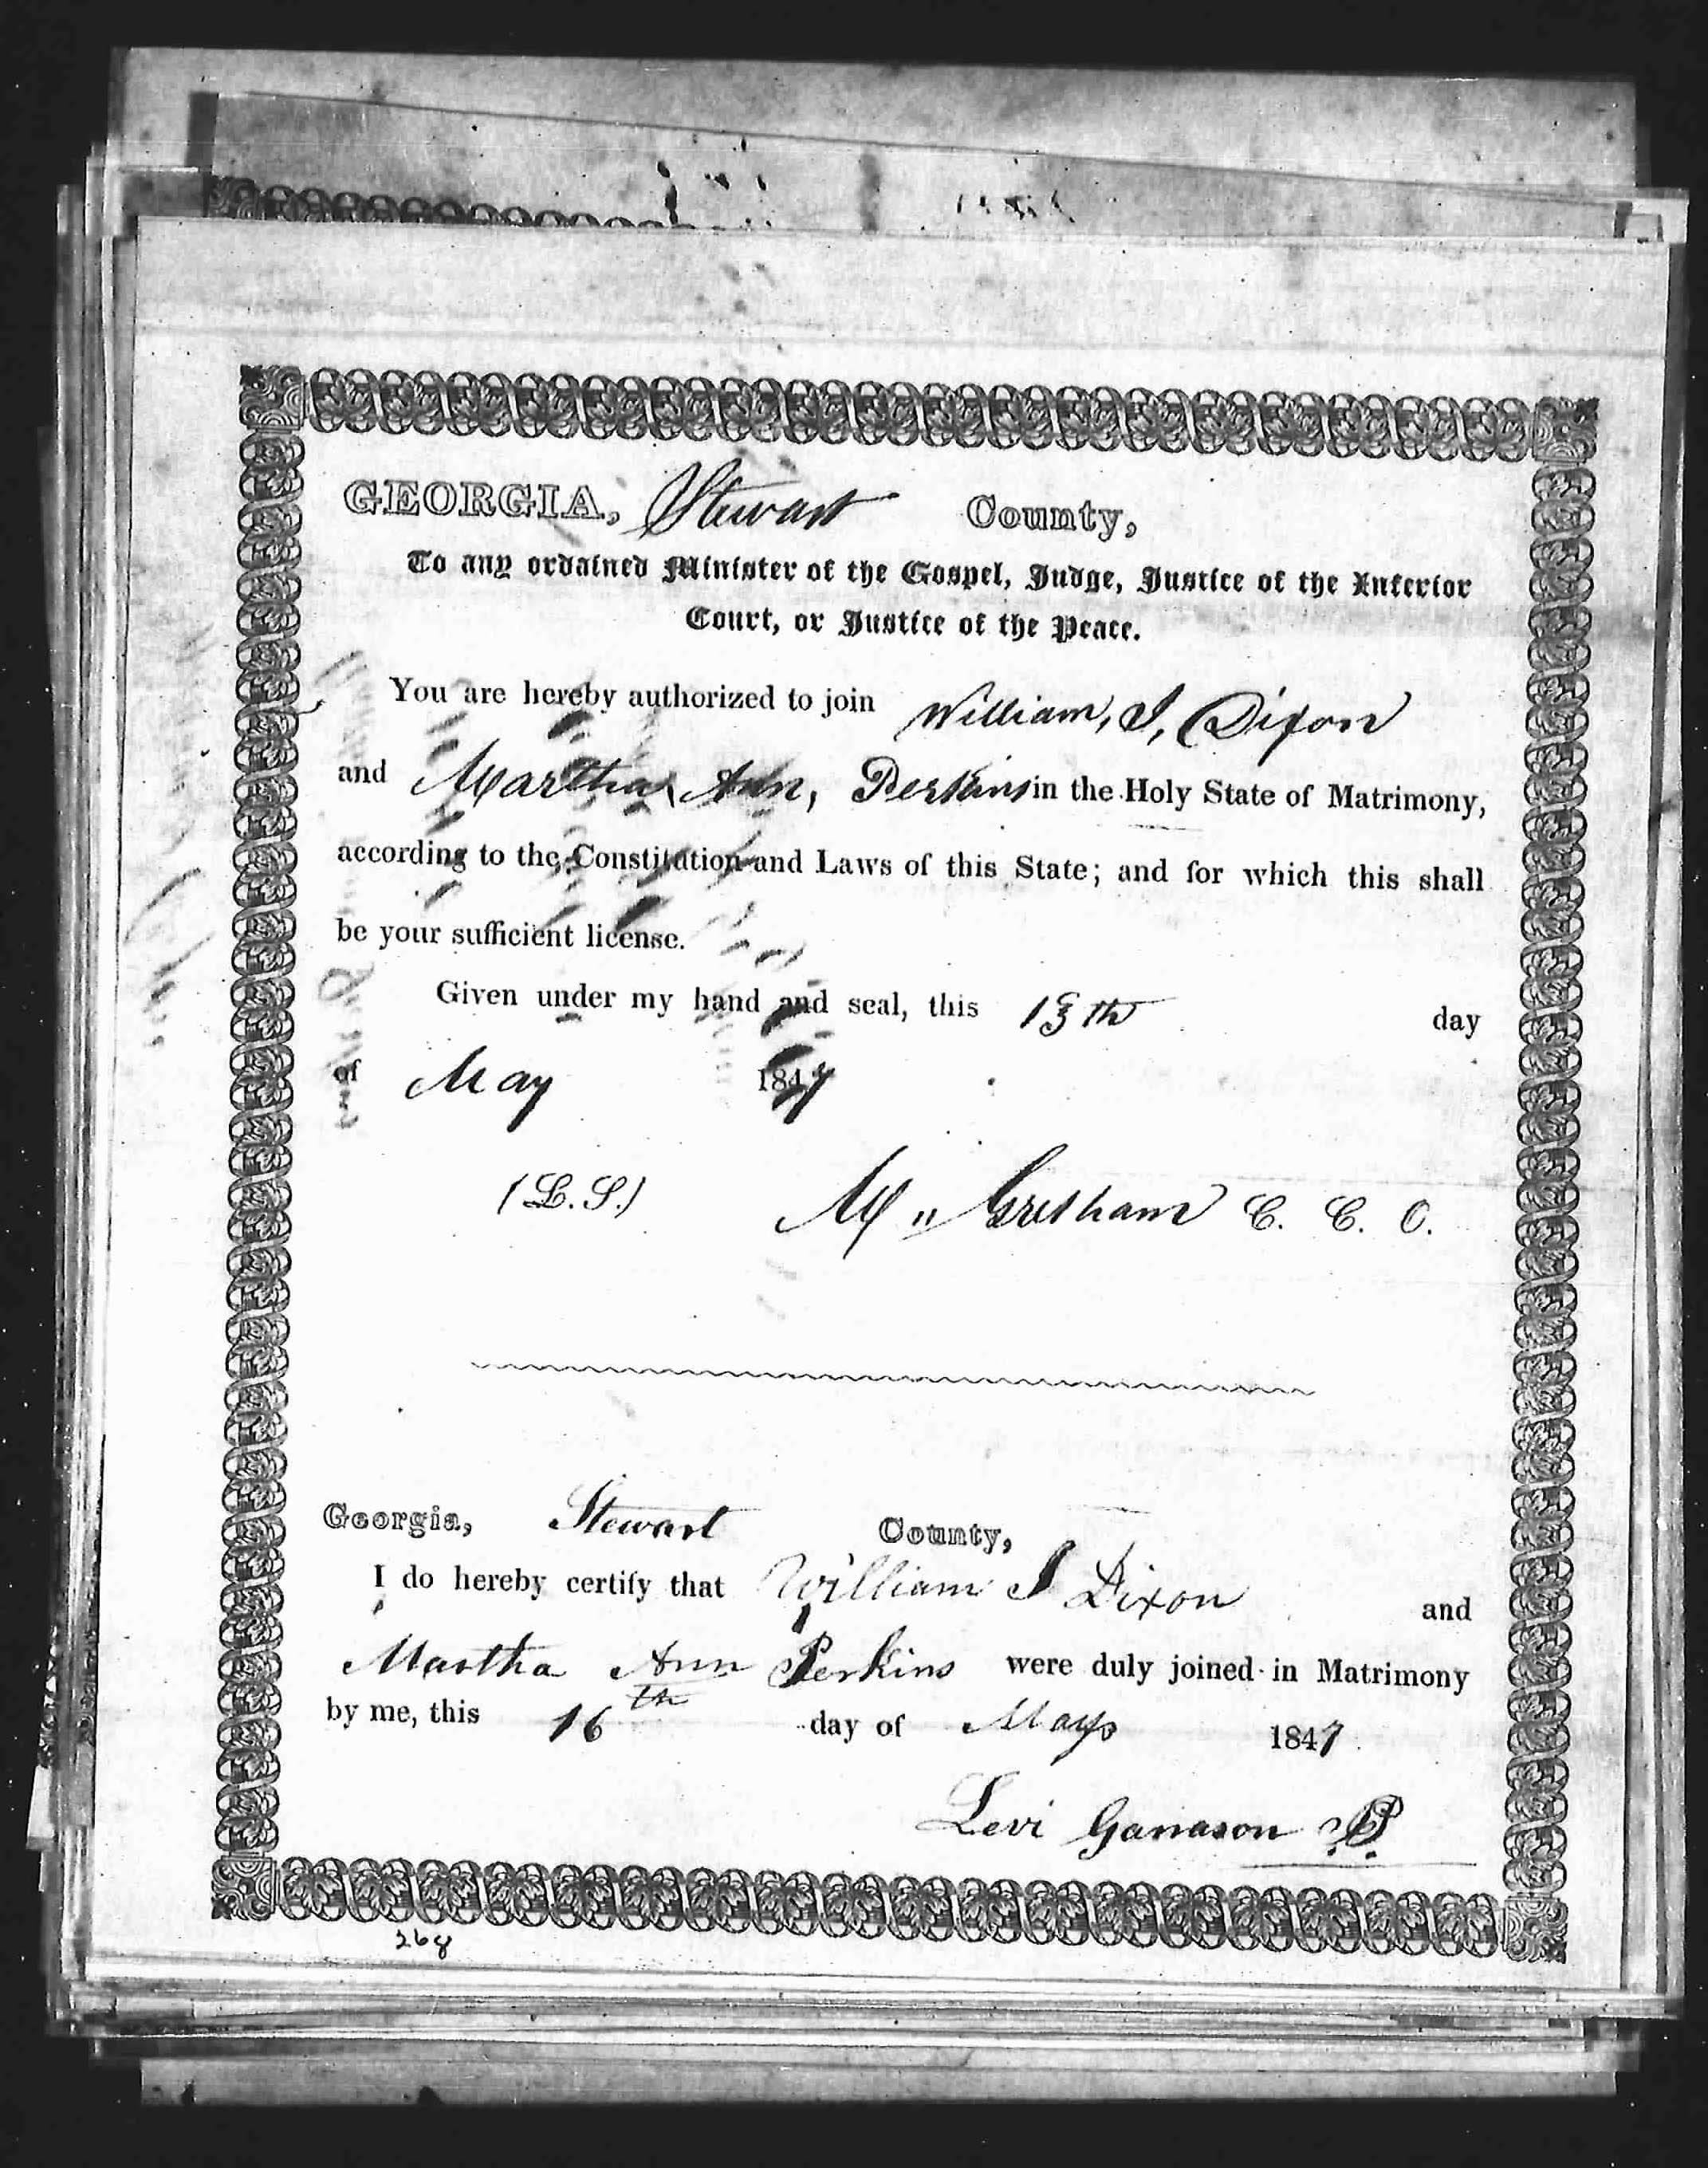 GEORGIA, Stewart County,
To any ordained Minister of the Gospel, Judge, Justice of the Inferior
Court, or Justice of the Peace.
You are hereby authorized to join William, J, Dixon
and Martha Ann, Perkins in the Holy State of Matrimony,
according to the Constitution and Laws of this State; and for which this shall
be your sufficient license.
Given under my hand and seal, this 13th day
of May 1847
(L.S.)
M " Gresham C. C. O.
Georgia, Stewart County,
I do hereby certify that William J Dixon and
Martha Ann Perkins were duly joined in Matrimony
by me, this 16th day of May 1847
Levi
268